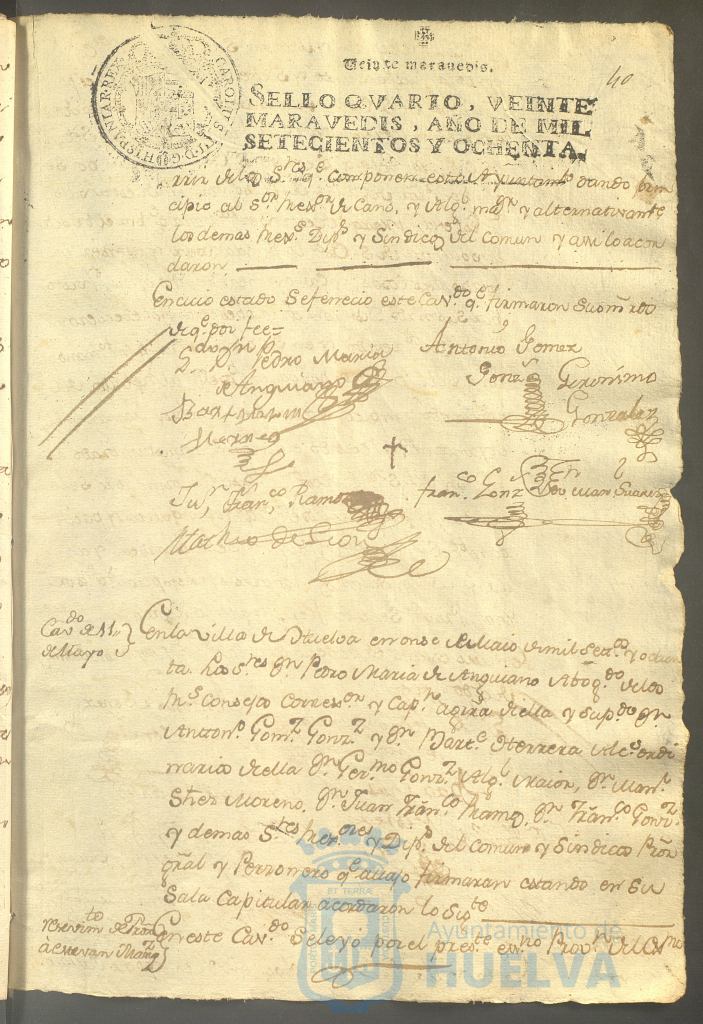 Veinte maravedis.
40
SELLO QVARTO, VEINTE
MARAVEDIS, AÑO DE MIL
SETECIENTOS Y OCHENTA.
CAROLUS III D G HISPANIAR REX
q.e componen este Ayuntam.to dando prin
cipio al s.or y Alg.l m.or y alternativam.te
los demas Dip.s y Sindico del Comun y assi lo acor
daron
En cuio estado se fenecio este Cav.do q.e firmaron sus m.rds
de q.e doy fee=
D.n Pedro Maria
de Anguiano
Antonio Gomez
Gonz Geronimo
Gonzalez
Bartholome
Herrera
Ju.n Fran.co Ramos
Fran.co Gonz
Man.l Suarez
Matheo de Leon
Cav.do de 11
de Mayo
En la villa de Huelva en onse de Maio de mil Set.s y ochen
ta. Los S.res D.n Pedro Maria de Anguiano Abog.do de los
R.s Consejos Correx.or y Cap.n a grra de ella y su p.do D.n
Anton.o Gom.z Gonz.z y D.n Bart.e Herrera Alc.s ordi
narios de ella D.n Ger.mo Gonz.z Alg.l maior, D.n Man.l
Shez Moreno, D.n Juan Fran.co Ramos, D.n Fran.co Gonz.z
y demas S.res y Dip.s del Comun y Sindico Pror
gral y Personero q.e avajo firmaran estando en su
Sala Capitular acordaron lo sig.te
En este Cav.do se leyo por el pres.te es.no
Ayuntamiento de
HUELVA